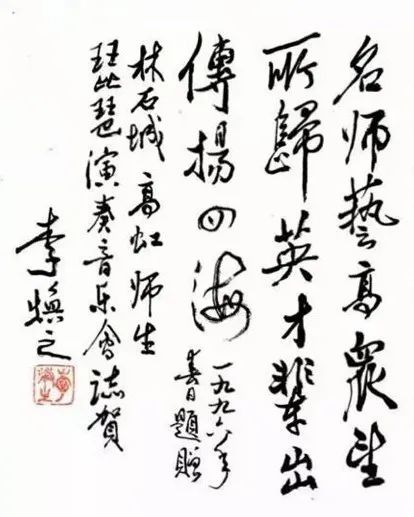 名师藝高眾望
所歸英才輩出
傳揚四海 一九九六年
春題贈
林石城 高虹师生
琵琶演奏音乐會誌賀
李焕之